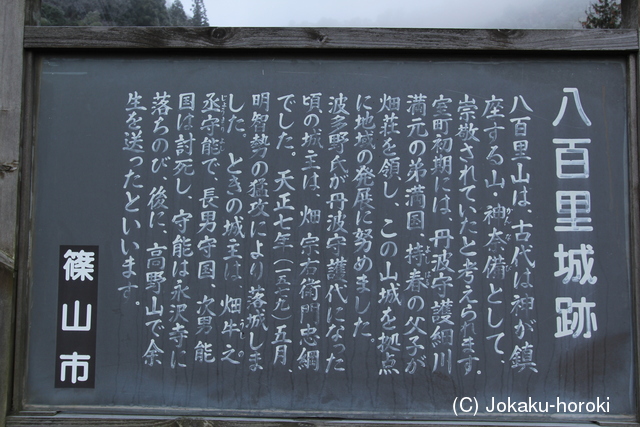 八百里城跡
八百里山は、古代は神が鎮
座する山・神奈備として、
崇敬されていたと考えられます。
室町初期には、丹波守護細川
満元の弟満国・持春の父子が
畑荘を領し、この山城を拠点
に地域の発展に努めました。
波多野氏が丹波守護代になった
頃の城主は、畑 宇右衛門忠綱
でした。天正七年(一五七九)五月、
明智勢の猛攻により落城しま
した。ときの城主は、畑牛之
丞守能で、長男守国、次男能
国は討死し、守能は永沢寺に
落ちのび、後に、高野山で余
生を送ったといいます。
篠山市
(C) Jokaku-horoki